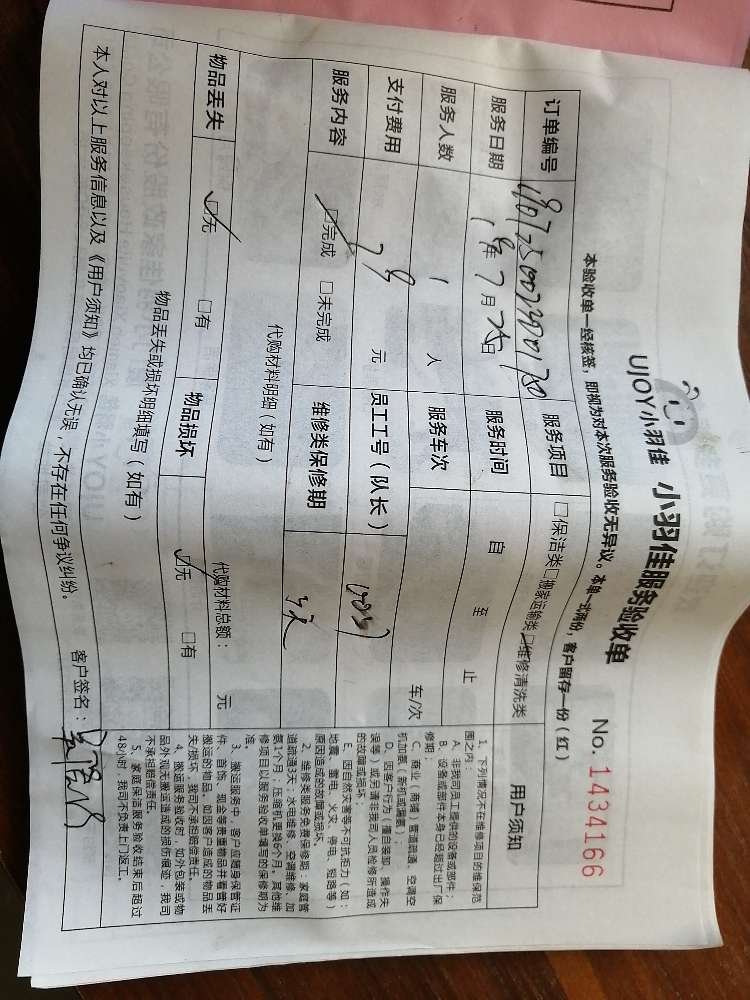 UJOY小羽佳 小羽佳服务验收单
No. 1434166
本验收单一经核签，即视为对本次服务验收无异议。本单一式两份，客户留存一份（红）
订单编号 服务项目 □保洁类□搬家运输类☑维修清洗类
服务日期 19年7月25日 服务时间 自 至 止
服务人数 1 人 服务车次 车/次
支付费用 元 员工工号（队长）
服务内容 ☑完成 □未完成 维修类保修期 3天
代购材料明细（如有） 代购材料总额： 元
物品丢失 ☑无 □有 物品损坏 ☑无 □有
物品丢失或损坏明细填写（如有）
本人对以上服务信息以及《用户须知》均已确认无误，不存在任何争议纠纷。 客户签名：
用户须知
1、下列情况不在维修项目的维保范
围之内：
A、非我司员工提供的设备或部件；
B、设备或部件本身已经超过出厂保
修期；
C、商业（商铺）管道疏通、空调空
机加氨、新机或隔窗）；
D、因客户行为（擅自装卸、操作失
误等）或另请非我司人员检修所造成
的故障或损坏；
E、因自然灾害等不可抗拒力（如：
地震、雷电、火灾、停电、短路等）
原因造成的故障或损坏。
2、维修类服务免费保修期：家庭管
道疏通3天；水电维修、空调维修、加
氨1个月；压缩机更换6个月。其他维
修项目以服务验收单填写的保修期为
准。
3、搬运服务中，客户应随身保管证
件、首饰、现金等贵重物品并看管好
搬运的物品。如因客户造成的物品丢
失/损坏，我司不承担赔偿责任。
4、搬运服务验收时，如外包装或物
品外观无搬运造成的损伤痕迹，我司
不承担赔偿责任。
5、家庭保洁服务验收结束后超过
48小时，我司不负责上门返工。